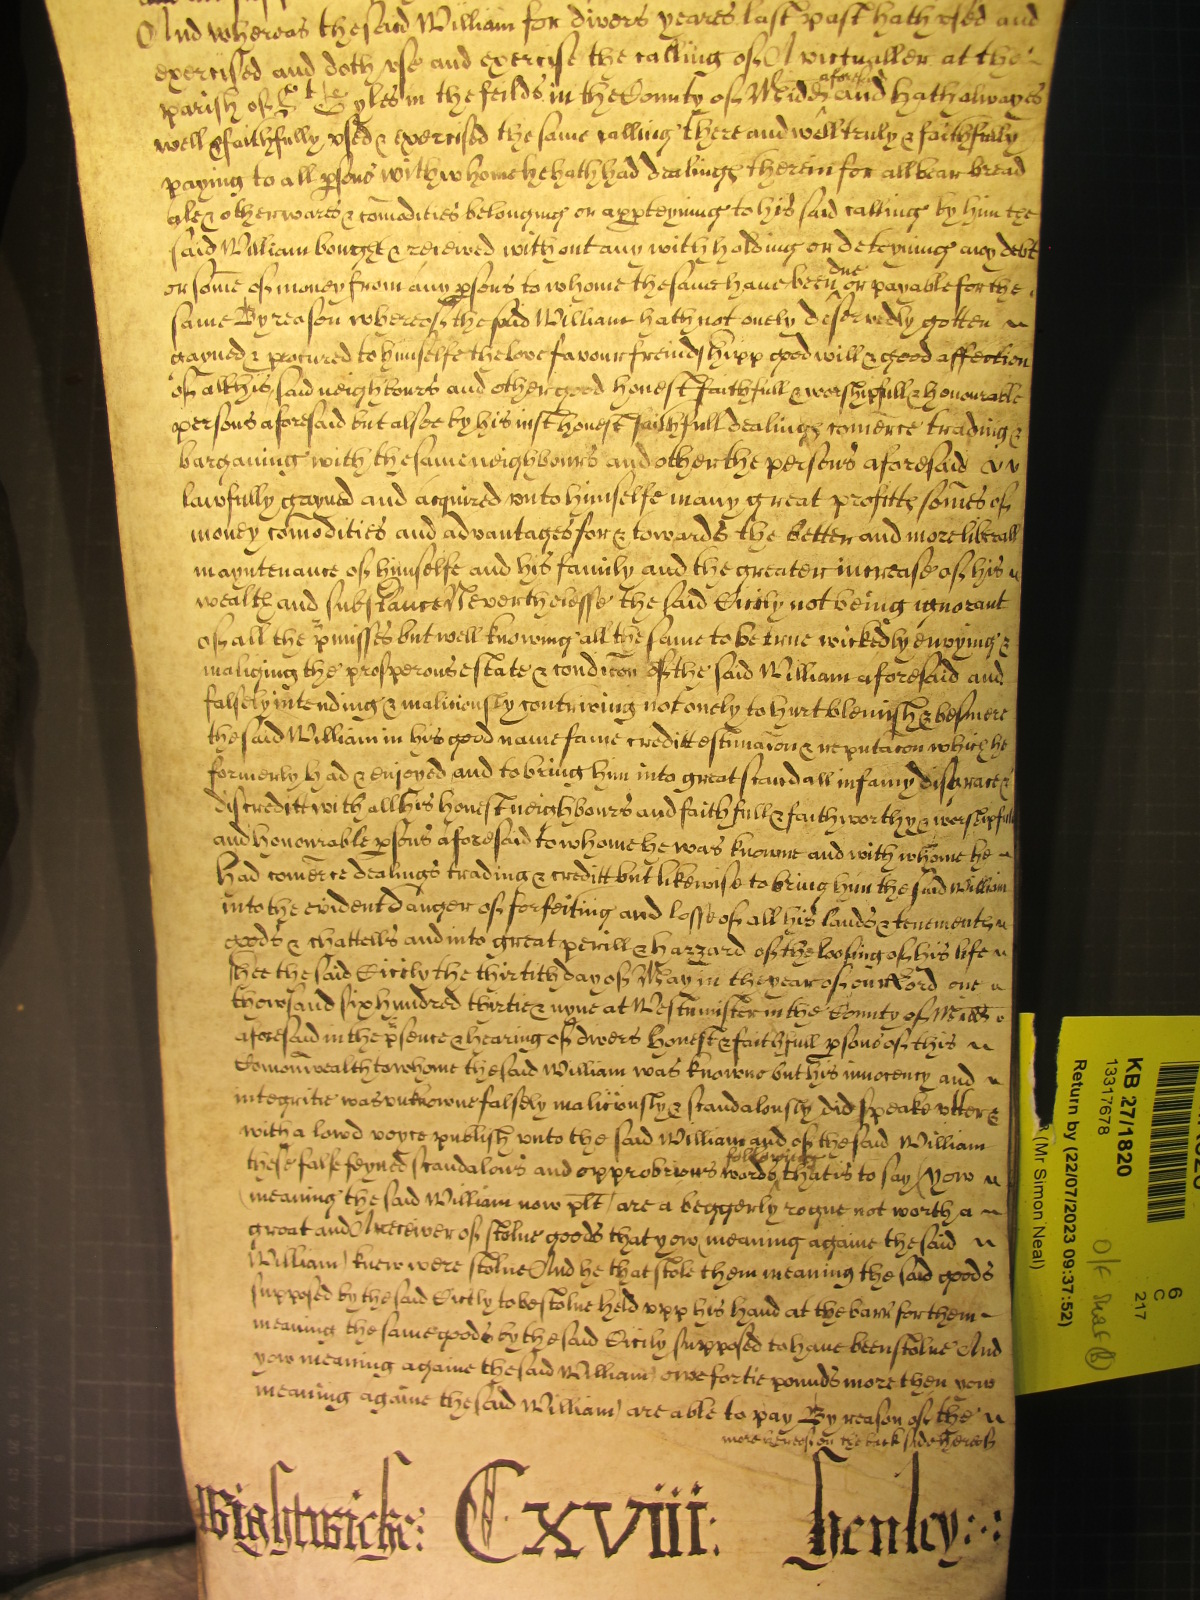 And whereas the said William for divers yeares last past hath vsed and
exercised and doth vse and exercise the calling of A victualler at the
parish of St Gyles in the feilds in the County of Midd aforesaid and hath alwayes
well & faithfully vsed & exercised the same calling there and well truly & faithfully
paying to all psons with whome he hath had dealings therein for all bear bread
ale & other wares & comodities belonging or appteyning to his said calling by him the
said William bought & receiued without any withholding or deteyning any debt
or some of money from any psons to whome the same haue been due or payable for the
same By reason whereof the said William hath not onely deservedly gotten
gayned & procured to himselfe the love favour freindshipp good will & good affection
of all his said neighbours and other good honest faithfull & worshipfull & honourable
persons aforesaid but alsoe by his iust honest faithfull dealings comerce trading &
bargaining with the same neighbours and other the persons aforesaid
lawfully gayned and acquired vnto himselfe many great profitts somes of
money comodities and advantages for & towards the better and more liberall
mayntenance of himselfe and his family and the greater increase of his
wealth and substance Neverthelesse the said Cicily not being ignorant
of all the pmisses but well knowing all the same to be true wickedly envying &
maligning the prosperous estate & condicon of the said William aforesaid and
falsely intending & maliciously contriving not onely to hurt blemish & besmere
the said William in his good name fame creditt estimacon & reputacon which he
formerly had & enjoyed and to bring him into great scandall infamy disgrace &
discreditt with all his honest neighbours and faithfull & faithworthy & worshipfull
and honourable psons aforesaid to whome he was knowne and with whome he
had comerce dealings trading & creditt but likewise to bring him the said William
into the evident danger of forfeiting and losse of all his lands & tenements
goods & chattells and into great perill & hazzard of the loosing of his life
shee the said Cicily the thirtith day of May in the yeare of our Lord one
thowsand six hundred thirtie & nyne at Westminster in the County of Midd
aforesaid in the psence & hearing of divers honest & faithfull psons of this
Comonwealth to whome the said William was knowne but his innocency and
integritie was vnknowne falsely maliciously & scandalously did speake vtter &
with a lowd voyce publish vnto the said William and of the said William
these false feyned scandalous and opprobrious words following that is to say (yow
(meaning the said William now plt) are a beggerly rogue not worth a
groat and A receiver of stolne goods that yow meaning againe the said
William) knew were stolne And he that stole them meaning the said goods
supposed by the said Cicily to be stolne held vpp his hand at the barr for them
meaning the same goods by the said Cicily supposed to haue been stolne And
yow meaning againe the said William) owe fortie pounds more then yow
meaning againe the said William) are able to pay By reason of the
more hereof on the back side hereof
Wightwicke: CXVIII: Henley:
KB 27/1820
13317678
Return by (22/07/2023 09:37:52)
(Mr Simon Neal)
6
C
217